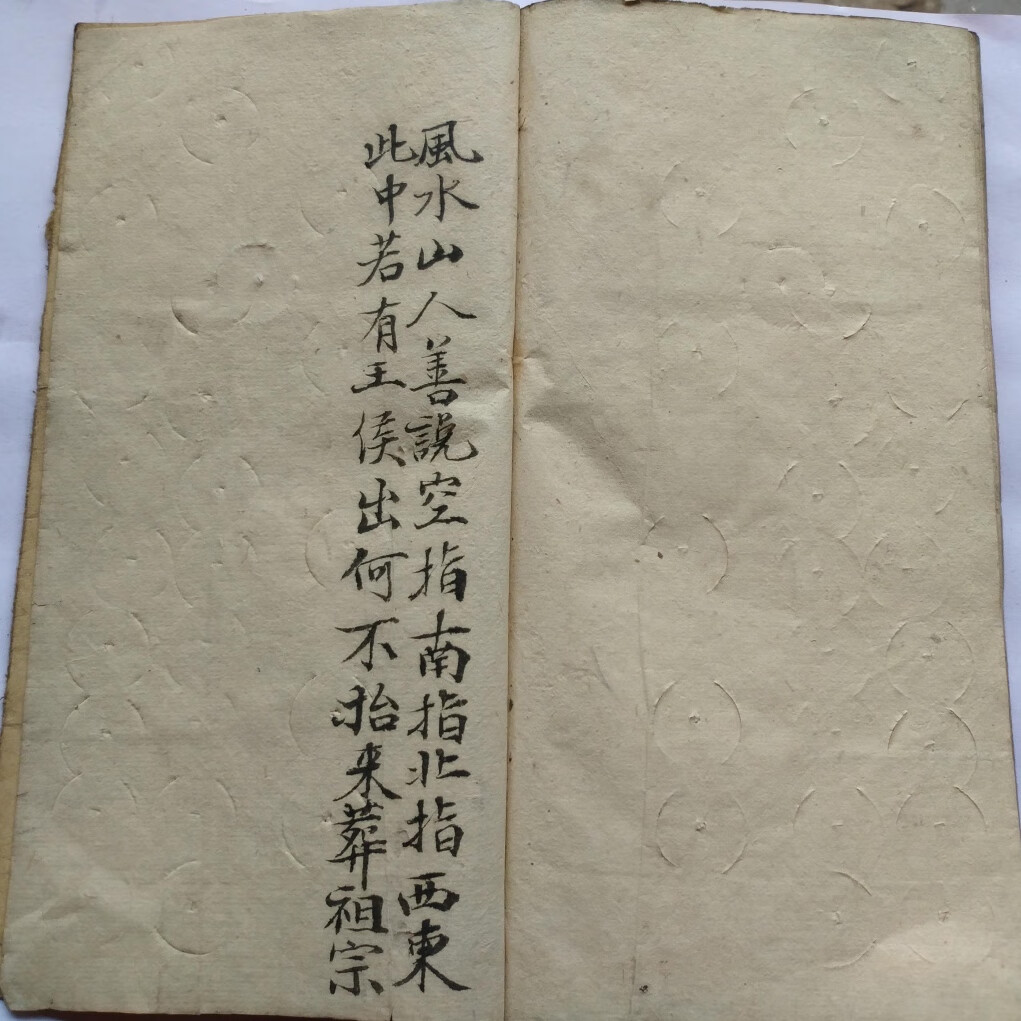 風水山人善說空指南指北指西東
此中若有王侯出何不抬来葬祖宗